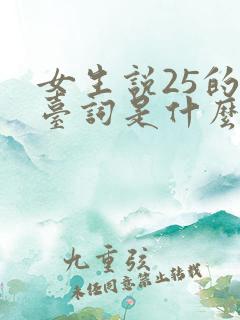 女生說25的
臺詞是什麼
九重弦
未经同意禁止转载